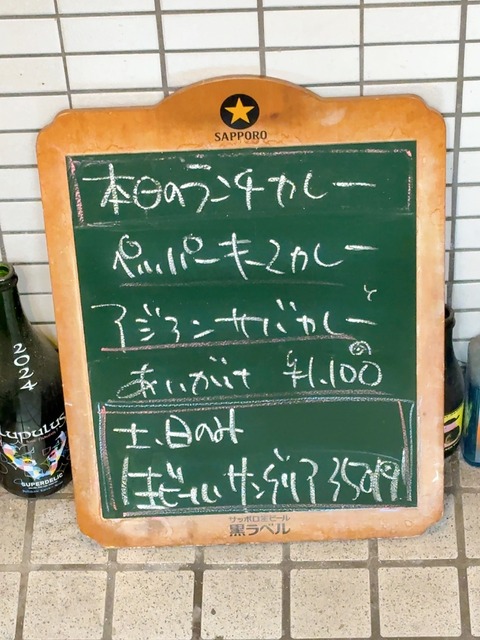 SAPPORO
本日のランチカレー
ペッパーキーマカレー
と
アジアンサバカレー
の
あいがけ ¥1,100
土、日のみ
生ビール サングリア 350円
サッポロ生ビール
黒ラベル
2024
Lupulus
SUPERDELIC